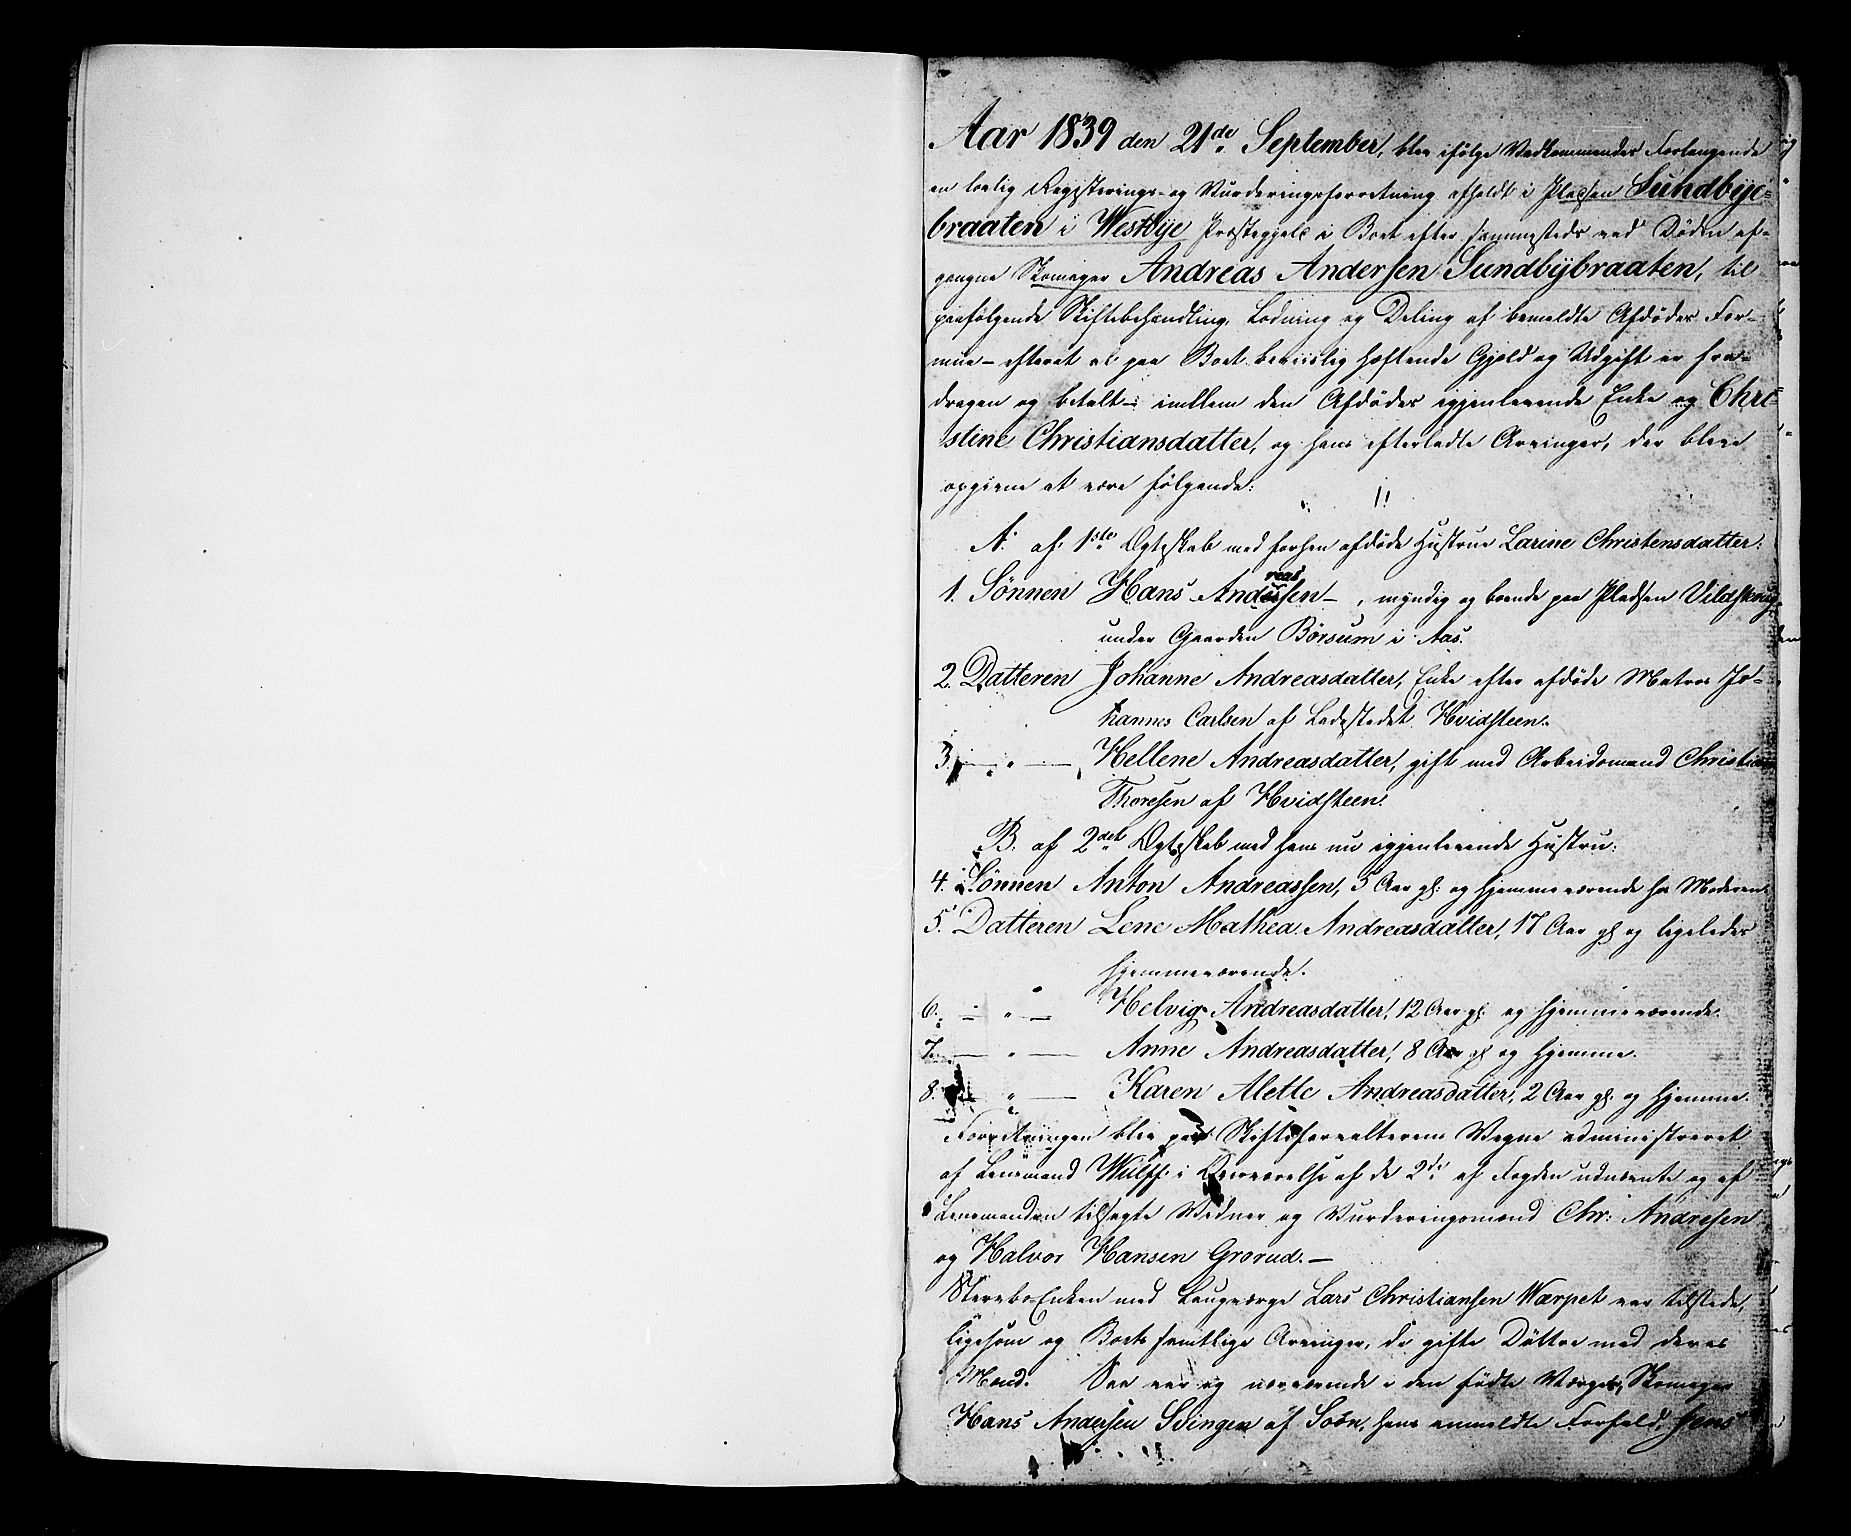 Aar 1839 den 21de September, blev ifølge Vedkommendes Forlangende
en lovlig Registerings- og Vurderingsforretning afholdt i Pladsen Sundbye-
braaten i Westbye Præstegjeld i Boet efter sammesteds ved Døden af-
gangne Skomager Andreas Andersen Sundbybraaten, til
paafølgende Skiftebehandling, Lodning og Deling af bemeldte Afdødes For-
mue – efterat al paa Boet beviislig hæftende Gjeld og Udgift er fra-
dragen og betalt – imellem den Afdødes igjenlevende Enke og Chri-
stine Christiansdatter, og hans efterladte Arvinger, der bleve
opgivne at være følgende:
A. af 1ste Ægteskab med forhen afdøde Hustrue Larine Christensdatter:
1. Sønnen Hans Andreassen –, myndig og boende paa Pladsen Vildskoug
under Gaarden Børsum i Aas.
2. Datteren Johanne Andreasdatter, Enke efter afdøde Matros Jo-
hannes Carlsen af Ladestedet Hvidsteen.
3. — " — Hellene Andreasdatter, gift med Arbeidsmand Christian
Thoresen af Hvidsteen.
B. af 2det Ægteskab med hans nu igjenlevende Hustru:
4. Sønnen Anton Andreassen, 5 Aar gl: og hjemmeværende hos Moderen.
5. Datteren Lene Mathea Andreasdatter, 17 Aar gl og ligeledes
hjemmeværende.
6. — " — Helvig Andreasdatter, 12 Aar gl. og hjemmeværende.
7. — " — Anne Andreasdatter, 8 Aar gl og hjemme.
8. — " — Karen Alette Andreasdatter, 2 Aar gl. og hjemme.
Forretningen blev paa Skifteforvalterens Vegne administreret
af Lensmand Wulff i Overværelse af de 2de af Fogden udnævnte og af
Lensmanden tilsagte Vidner og Vurderingsmænd Chr: Andresen
og Halvor Hansen Grorud. –
Stervbo-Enken med Laugværge Lars Christiansen Wærpet var tilstede,
ligesom og Boets samtlige Arvinger, de gifte Døttre med deres
Mænd. Saa var og nærværende i den fødte Værges, Skomager
Hans Andersen Svingen af Soon, hans anmeldte Forfald, Jens